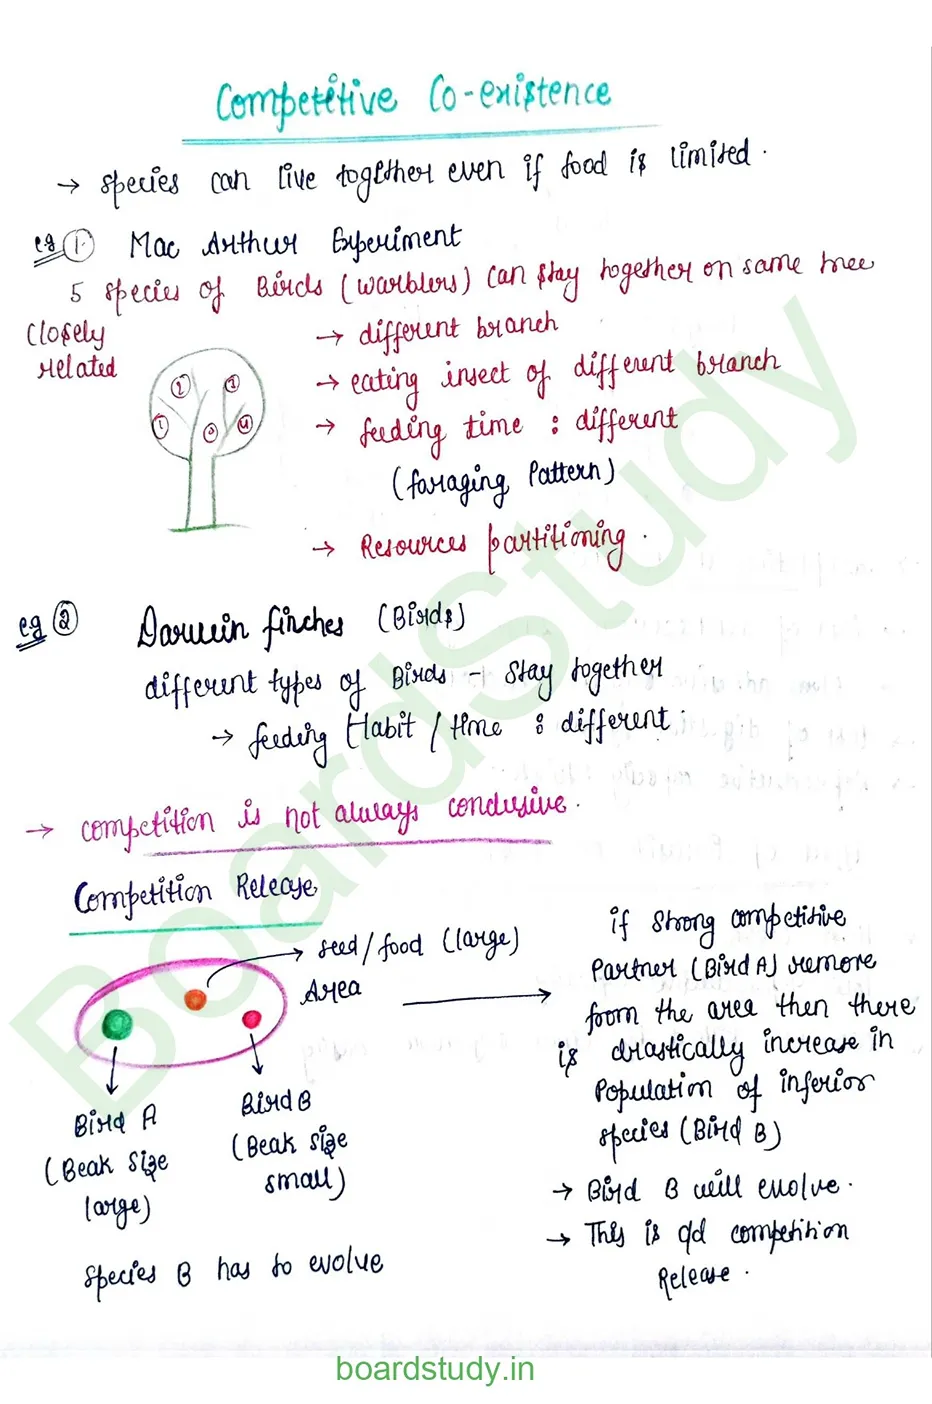 Competetive Co-existence
→ species can live together even if food is limited.
eg ① Mac Arthur Experiment
5 species of Birds (warblers) can stay together on same tree
closely
related
→ different branch
→ eating insect of different branch
→ feeding time : different
(foraging Pattern)
→ Resources partitioning.
① ② ③ ④
eg ② Darwin finches (Birds)
different types of Birds - stay together
→ feeding Habit / time : different.
→ competition is not always conclusive.
Competition Release
→ seed/food (large)
Area
Bird A
(Beak size
large)
Bird B
(Beak size
small)
Species B has to evolve
if strong competitive
Partner (Bird A) remore
from the area then there
is drastically increase in
Population of inferior
species (Bird B)
→ Bird B will evolve.
→ This is c/d competition
Release.
BoardStudy
boardstudy.in